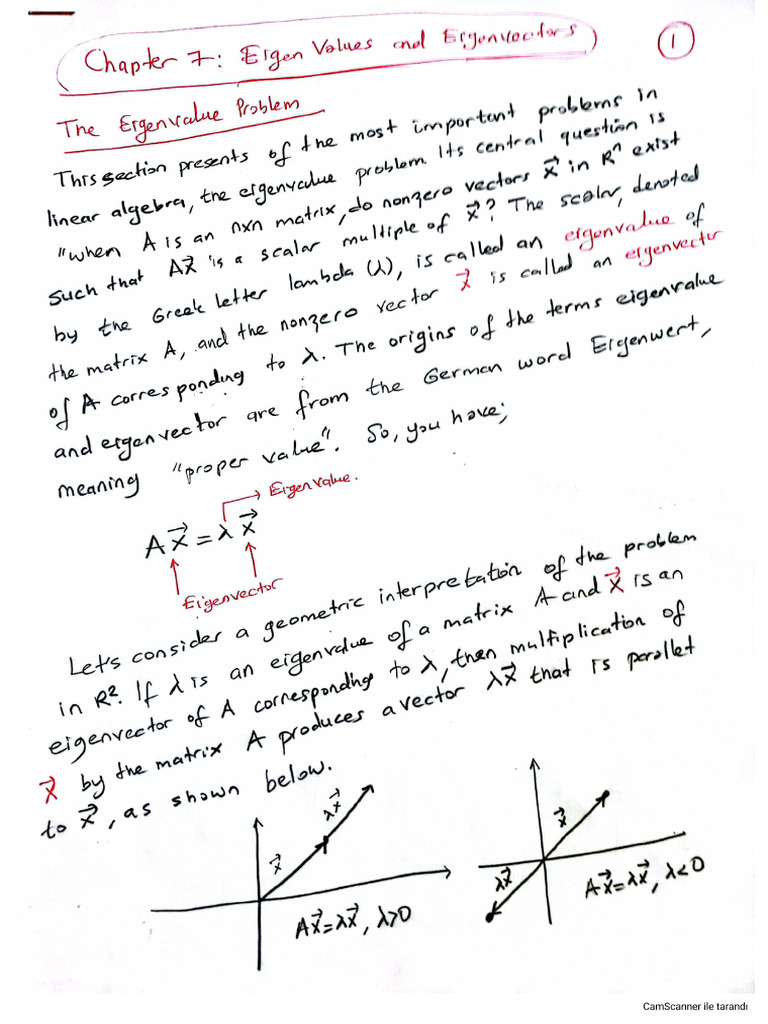 Chapter 7: Eigen Values and Eigenvectors
1
The Eigenvalue Problem
This section presents of the most important problems in
linear algebra, the eigenvalue problem. Its central question is
"when A is an nxn matrix, do nonzero vectors x⃗ in Rⁿ exist
such that Ax⃗ is a scalar multiple of x⃗? The scalar, denoted
by the Greek letter lambda (λ), is called an eigenvalue of
the matrix A, and the nonzero vector x⃗ is called an eigenvector
of A corresponding to λ. The origins of the terms eigenvalue
and eigenvector are from the German word Eigenwert,
meaning "proper value". So, you have;
Eigenvalue.
Ax⃗ = λx⃗
Eigenvector
Let's consider a geometric interpretation of the problem
in R². If λ is an eigenvalue of a matrix A and x⃗ is an
eigenvector of A corresponding to λ, then multiplication of
x⃗ by the matrix A produces a vector λx⃗ that is parallel
to x⃗, as shown below.
λx⃗
x⃗
Ax⃗=λx⃗, λ>0
x⃗
λx⃗
Ax⃗=λx⃗, λ<0
CamScanner ile tarandı